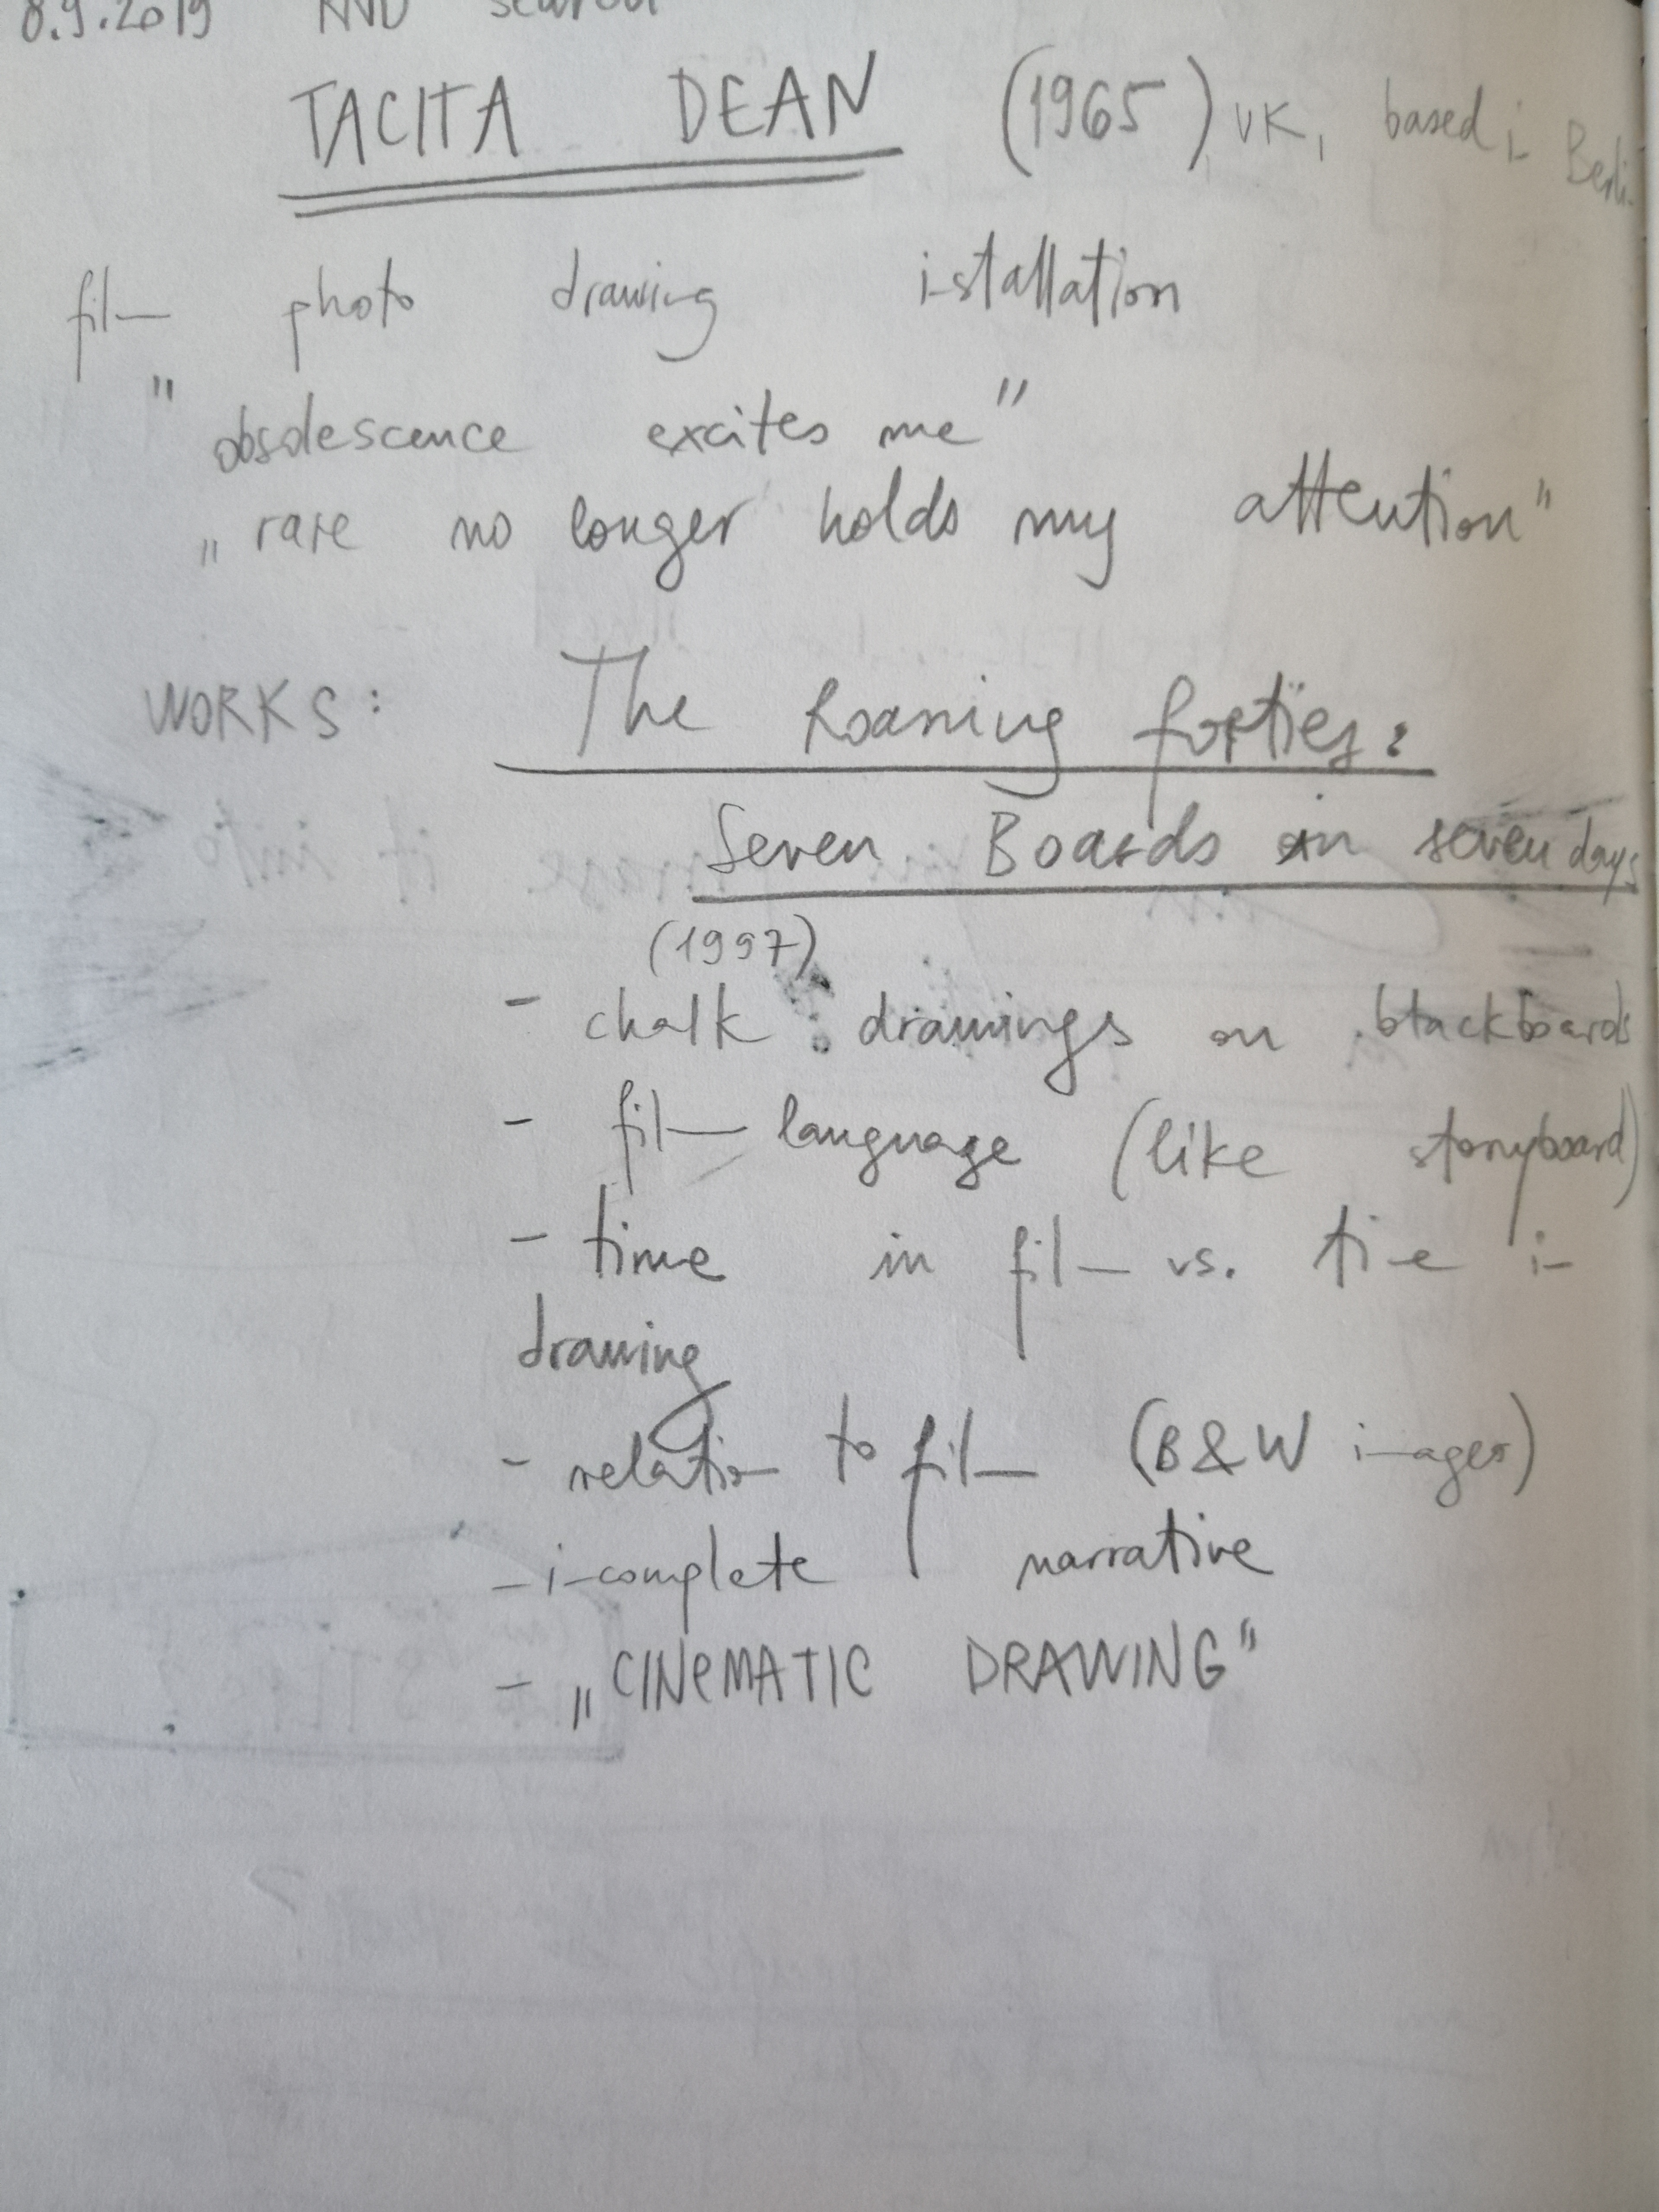 8.9.2019 search
TACITA DEAN (1965) UK, based in Berlin
film photo drawing installation
"obsolescence excites me"
„rare no longer holds my attention"
WORKS: The Roaring forties:
Seven Boards in seven days
(1997)
- chalk drawings on blackboards
- film language (like storyboard)
- time in film vs. time in
drawing
- relation to film (B&W images)
- incomplete narrative
- „CINEMATIC DRAWING"